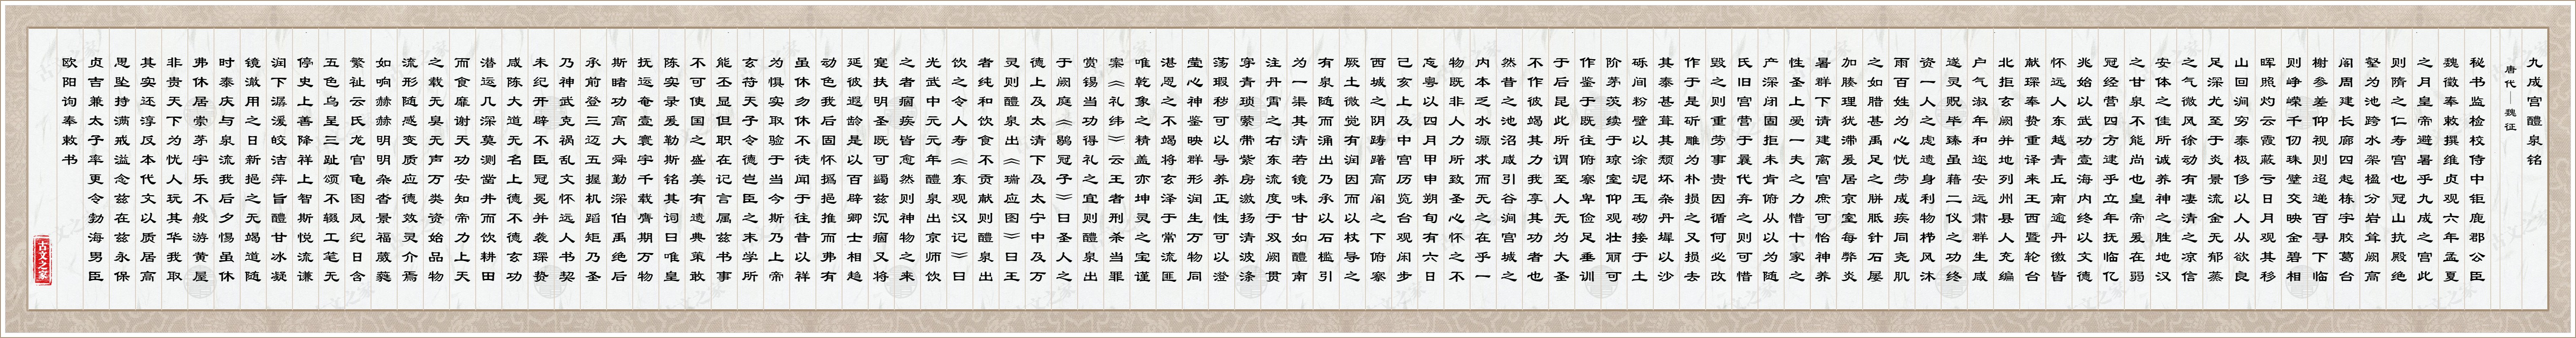 九成宫醴泉铭
唐代——魏征
秘书监检校侍中钜鹿郡公臣
魏徵奉敕撰维贞观六年孟夏
之月皇帝避暑乎九成之宫此
则隋之仁寿宫也冠山抗殿绝
壑为池跨水架楹分岩耸阙高
阁周建长廊四起栋宇胶葛台
榭参差仰视则迢递百寻下临
则峥嵘千仞珠璧交映金碧相
晖照灼云霞蔽亏日月观其移
山回涧穷泰极侈以人从欲良
足深尤至于炎景流金无郁蒸
之气微风徐动有凄清之凉信
安体之佳所诚养神之胜地汉
之甘泉不能尚也皇帝爰在弱
冠经营四方逮乎立年抚临亿
兆始以武功壹海内终以文德
怀远人东越青丘南逾丹徼皆
献琛奉贽重译来王西暨轮台
北拒玄阙并地列州县人充编
户气淑年和迩安远肃群生咸
遂灵贶毕臻虽藉二仪之功终
资一人之虑遗身利物栉风沐
雨百姓为心忧劳成疾同尧肌
之如腊甚禹足之胼胝针石屡
加腠理犹滞爰居京室每弊炎
暑群下请建离宫庶可怡神养
性圣上爱一夫之力惜十家之
产深闭固拒未肯俯从以为随
氏旧宫营于曩代弃之则可惜
毁之则重劳事贵因循何必改
作于是斫雕为朴损之又损去
其泰甚葺其颓坏杂丹墀以沙
砾间粉壁以涂泥玉砌接于土
阶茅茨续于琼室仰观壮丽可
作鉴于既往俯察卑俭足垂训
于后昆此所谓至人无为大圣
不作彼竭其力我享其功者也
然昔之池沼咸引谷涧宫城之
内本乏水源求而无之在乎一
物既非人力所致圣心怀之不
忘粤以四月甲申朔旬有六日
己亥上及中宫历览台观闲步
西城之阴踌躇高阁之下俯察
厥土微觉有润因而以杖导之
有泉随而涌出乃承以石槛引
为一渠其清若镜味甘如醴南
注丹霄之右东流度于双阙贯
穿青琐萦带紫房激扬清波涤
荡瑕秽可以导养正性可以澄
莹心神鉴映群形润生万物同
湛恩之不竭将玄泽于常流匪
唯乾象之精盖亦坤灵之宝谨
案《礼纬》云王者刑杀当罪
赏锡当功得礼之宜则醴泉出
于阙庭《鹖冠子》曰圣人之
德上及太清下及太宁中及万
灵则醴泉出《瑞应图》曰王
者纯和饮食不贡献则醴泉出
饮之令人寿《东观汉记》曰
光武中元元年醴泉出京师饮
之者痼疾皆愈然则神物之来
寔扶明圣既可蠲兹沉痼又将
延彼遐龄是以百辟卿士相趋
动色我后固怀撝挹推而弗有
虽休勿休不徒闻于往昔以祥
为惧实取验于当今斯乃上帝
玄符天子令德岂臣之末学所
能丕显但职在记言属兹书事
不可使国之盛美有遗典策敢
陈实录爰勒斯铭其词曰唯皇
抚运奄壹寰宇千载膺期万物
斯睹功高大舜勤深伯禹绝后
承前登三迈五握机蹈矩乃圣
乃神武克祸乱文怀远人书契
未纪开辟不臣冠冕并袭琛贽
咸陈大道无名上德不德玄功
潜运几深莫测凿井而饮耕田
而食靡谢天功安知帝力上天
之载无臭无声万类资始品物
流形随感变质应德效灵介焉
如响赫赫明明杂沓景福葳蕤
繁祉云氏龙官龟图凤纪日含
五色乌呈三趾颂不辍工笔无
停史上善降祥上智斯悦流谦
润下潺湲皎洁萍旨醴甘冰凝
镜澈用之日新挹之无竭道随
时泰庆与泉流我后夕惕虽休
弗休居崇茅宇乐不般游黄屋
非贵天下为忧人玩其华我取
其实还淳反本代文以质居高
思坠持满戒溢念兹在兹永保
贞吉兼太子率更令勃海男臣
欧阳询奉敕书
古文之家